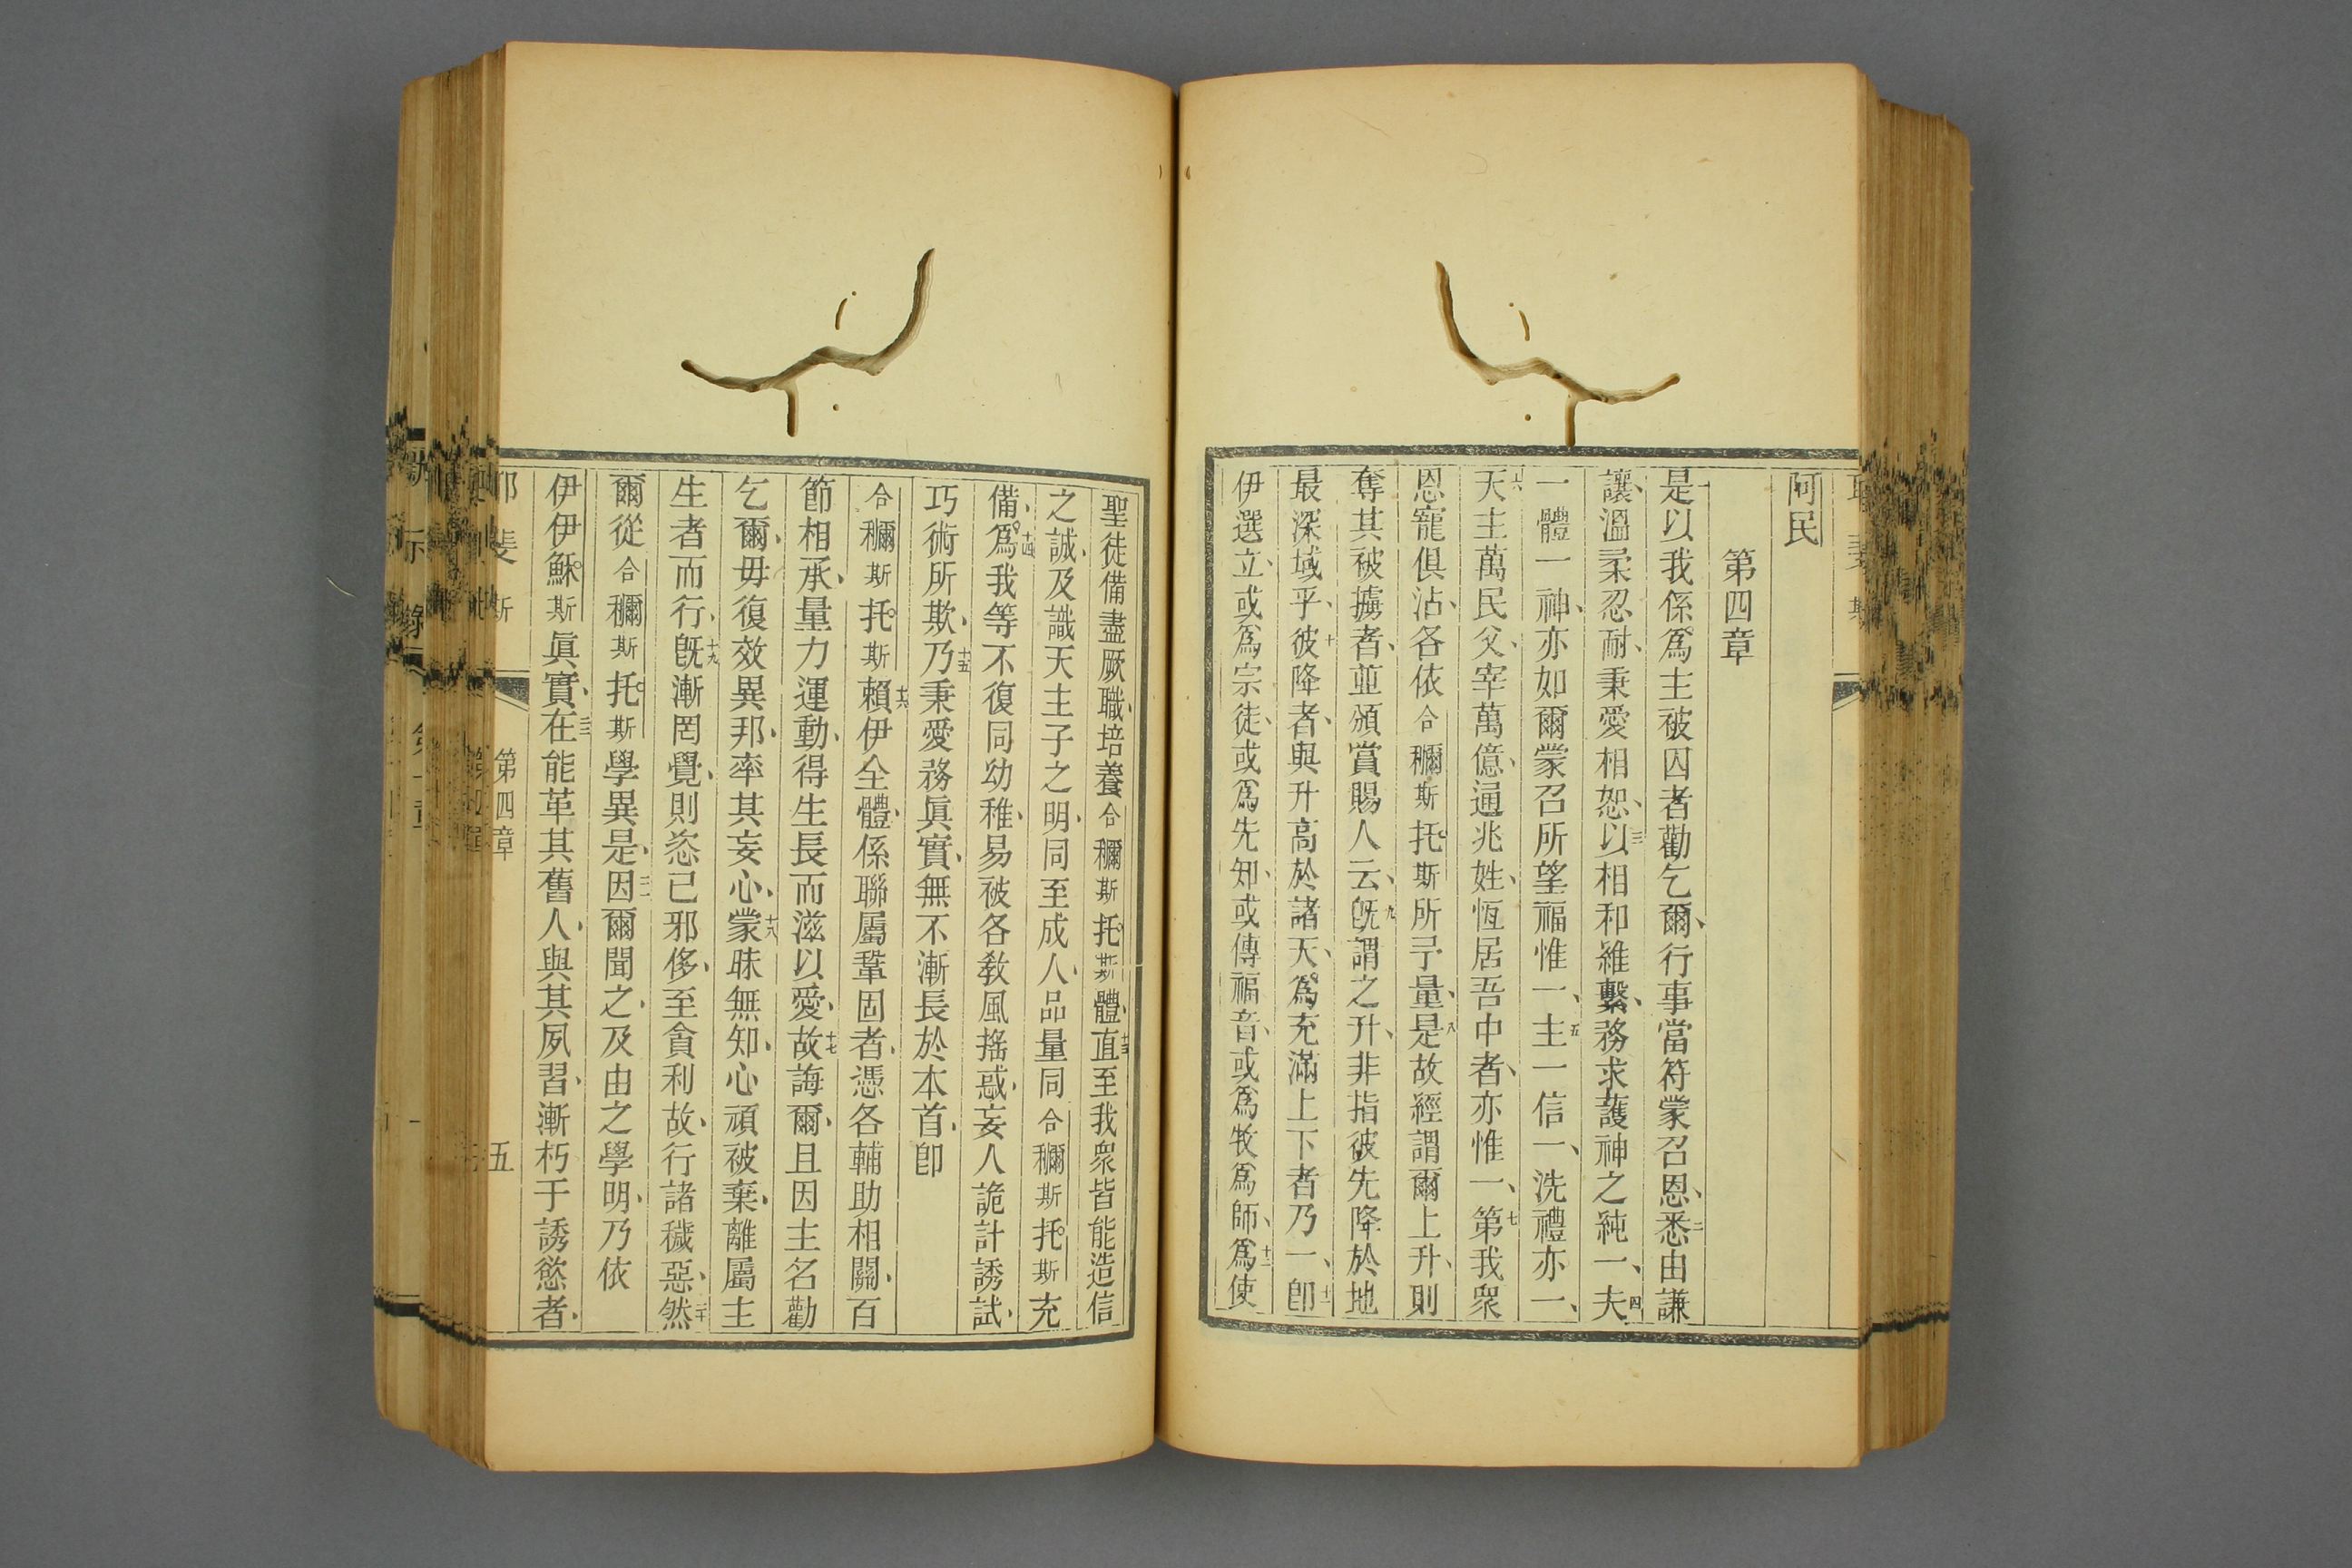 阿民
第四章
一是以我係爲主被囚者勸乞爾、行事當符蒙召恩、二悉由謙
讓、溫柔忍耐、秉愛相恕、三以相和維繫、務求護神之純一、四夫
一體一神、亦如爾蒙召所望福惟一、五主一信一、洗禮亦一、
六天主萬民父、宰萬億、通兆姓、恆居吾中者、亦惟一、七第我衆
恩寵俱沾、各依合穪斯托斯所予量、八是故經謂爾上升、則
奪其被擄者、並頒賞賜人云、九旣謂之升、非指彼先降於地
最深域乎、十彼降者、與升高於諸天、爲充滿上下者乃一、十一卽
伊選立、或爲宗徒、或爲先知、或傳福音、或爲牧爲師、十二爲使
聖徒備盡厥職、培養合穪斯托斯體、十三直至我衆皆能造信
之誠、及識天主子之明、同至成人、品量同合穪斯托斯充
備、十四爲我等不復同幼稚、易被各教風搖惑、妄人詭計誘試、
巧術所欺、十五乃秉愛務眞實、無不漸長於本首、卽
合穪斯托斯、十六賴伊全體、係聯屬鞏固者、憑各輔助相關、百
節相承、量力運動、得生長而滋以愛、十七故誨爾、且因主名勸
乞爾、毋復效異邦、率其妄心、十八蒙昧無知、心頑被棄、離屬主
生者而行、十九旣漸罔覺、則恣己邪侈、至貪利故、行諸穢惡、二十然
爾從合穪斯托斯學異是、二一因爾聞之、及由之學明、乃依
伊伊穌斯眞實、二二在能革其舊人、與其夙習、漸朽于誘慾者、
耶斐斯
第四章
五